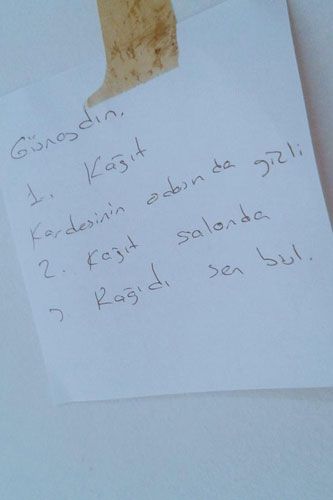 Günaydın.
1. Kağıt
Kardesinin odasında gizli
2. Kağıt salonda
3. Kağıdı sen bul.